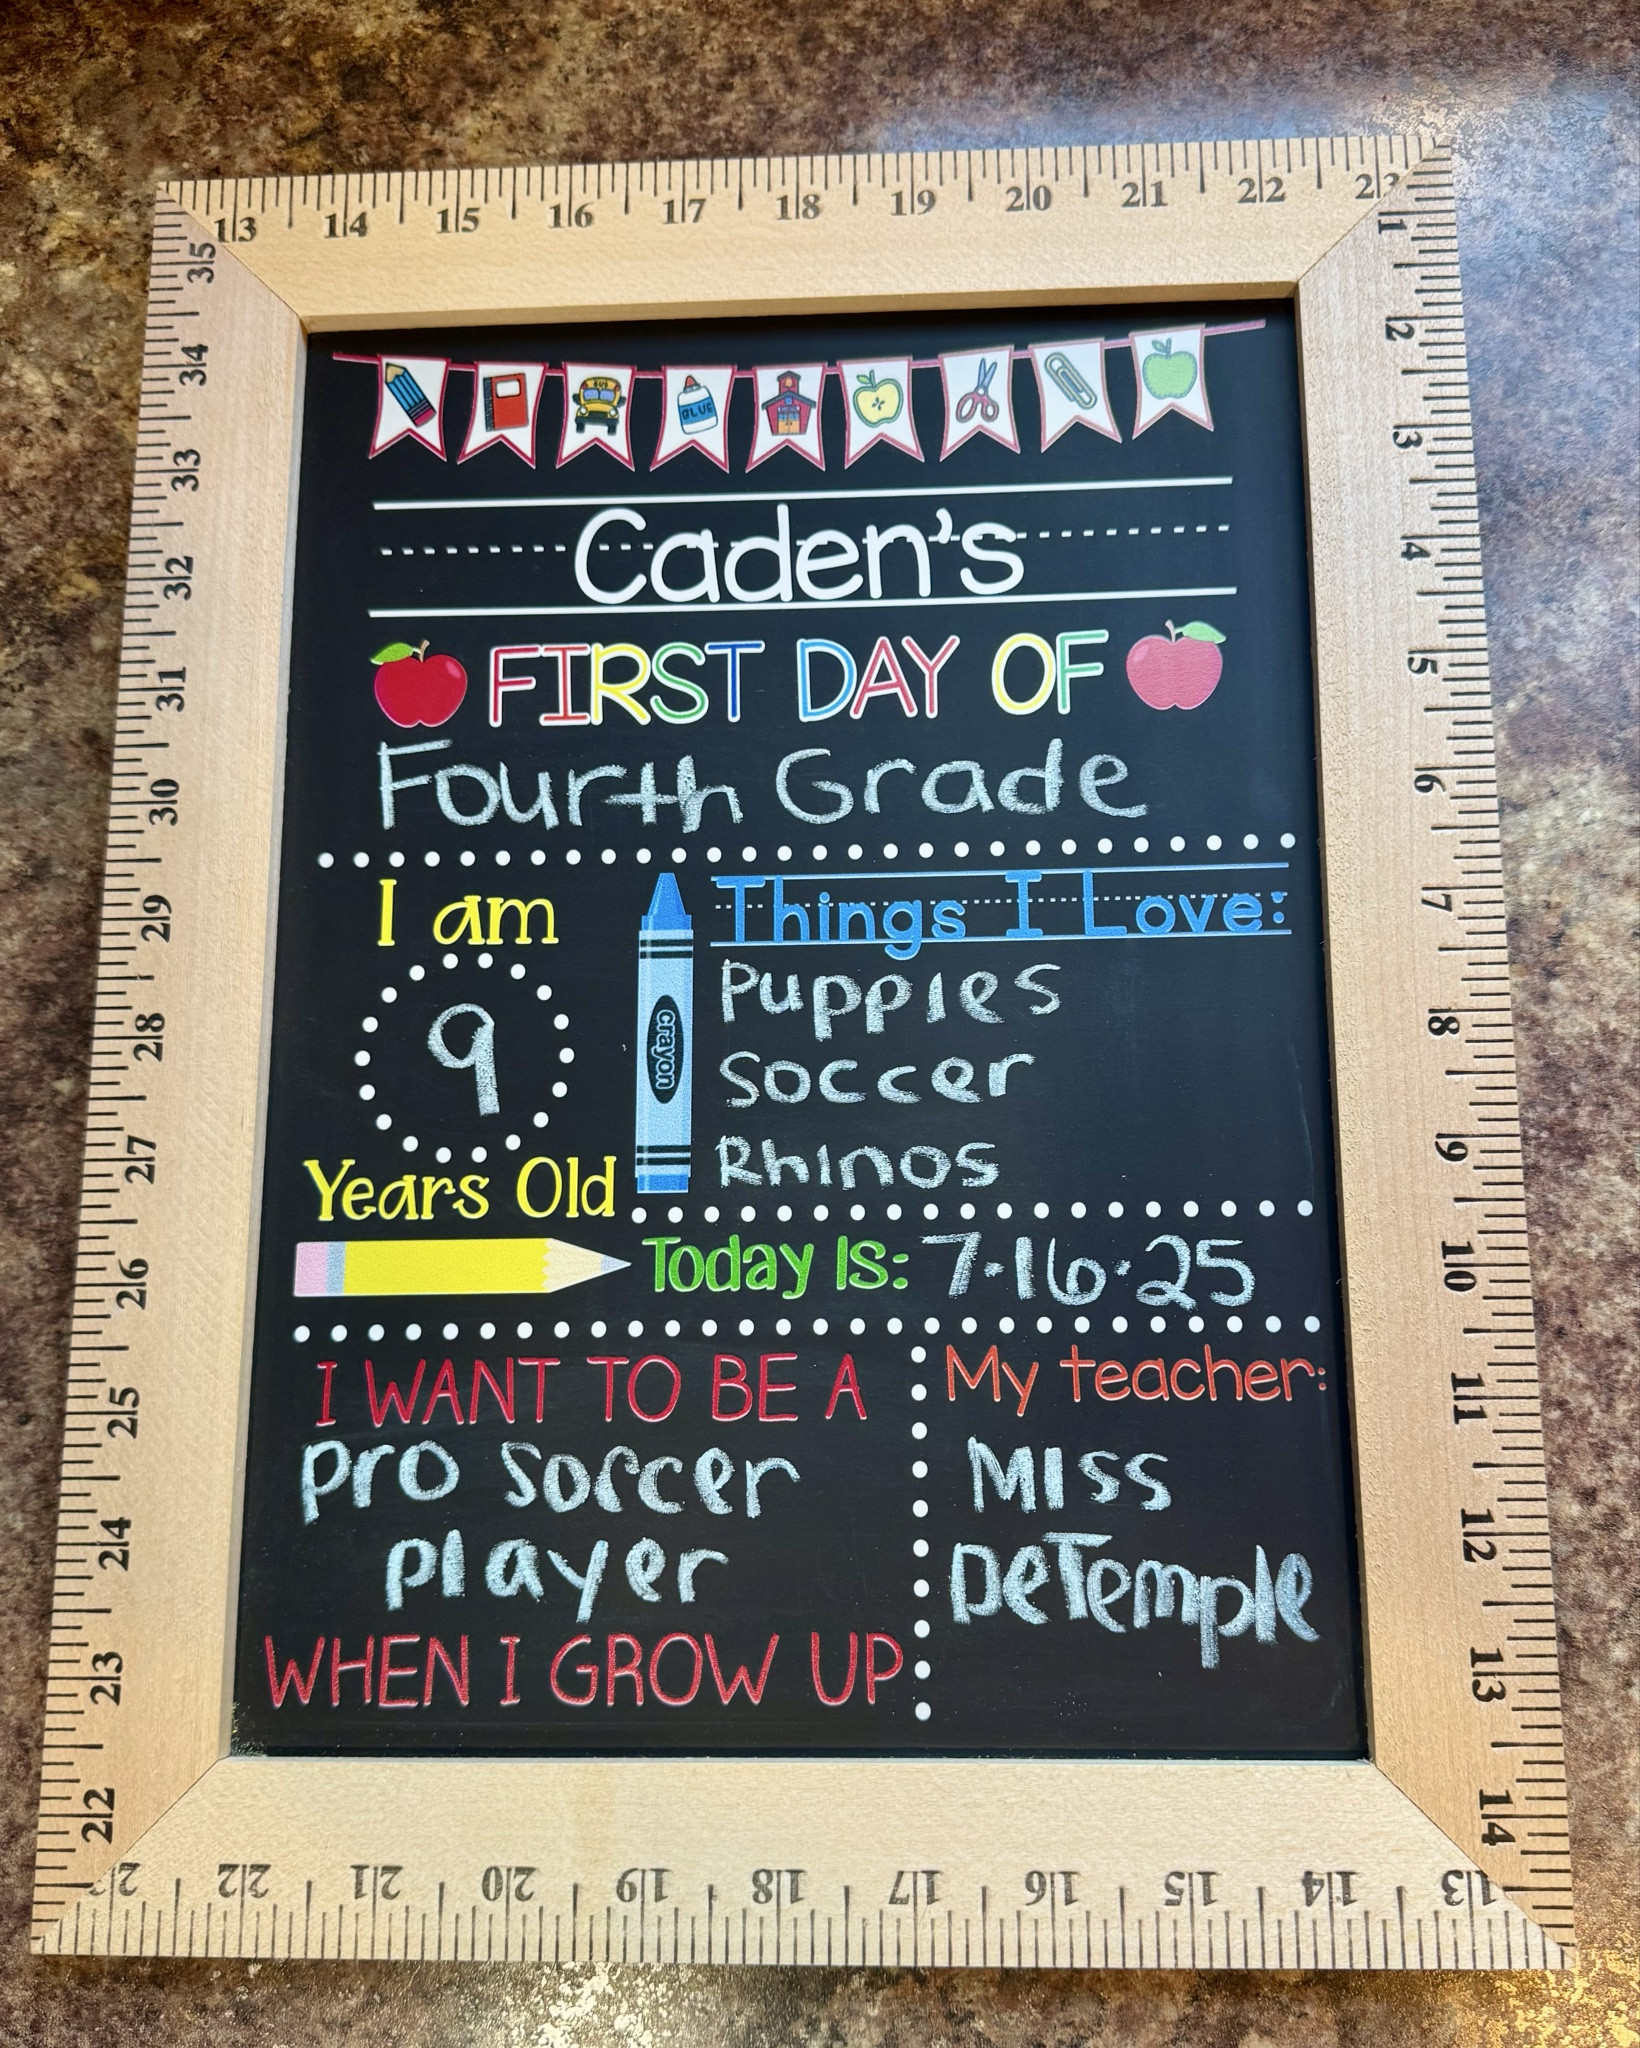 13 14 15 16 17 18 19 20 21 22 23
35 34 33 32 31 30 29 28 27 26 25 24 23 22
BUS
GLUE
Caden's
FIRST DAY OF
Fourth Grade
I am
9
Years Old
crayon
Things I Love:
Puppies
Soccer
Rhinos
Today Is: 7.16.25
I WANT TO BE A
pro soccer
player
WHEN I GROW UP
My teacher:
Miss
DeTemple
1 2 3 4 5 6 7 8 9 10 11 12 13 14
23 22 21 20 19 18 17 16 15 14 13